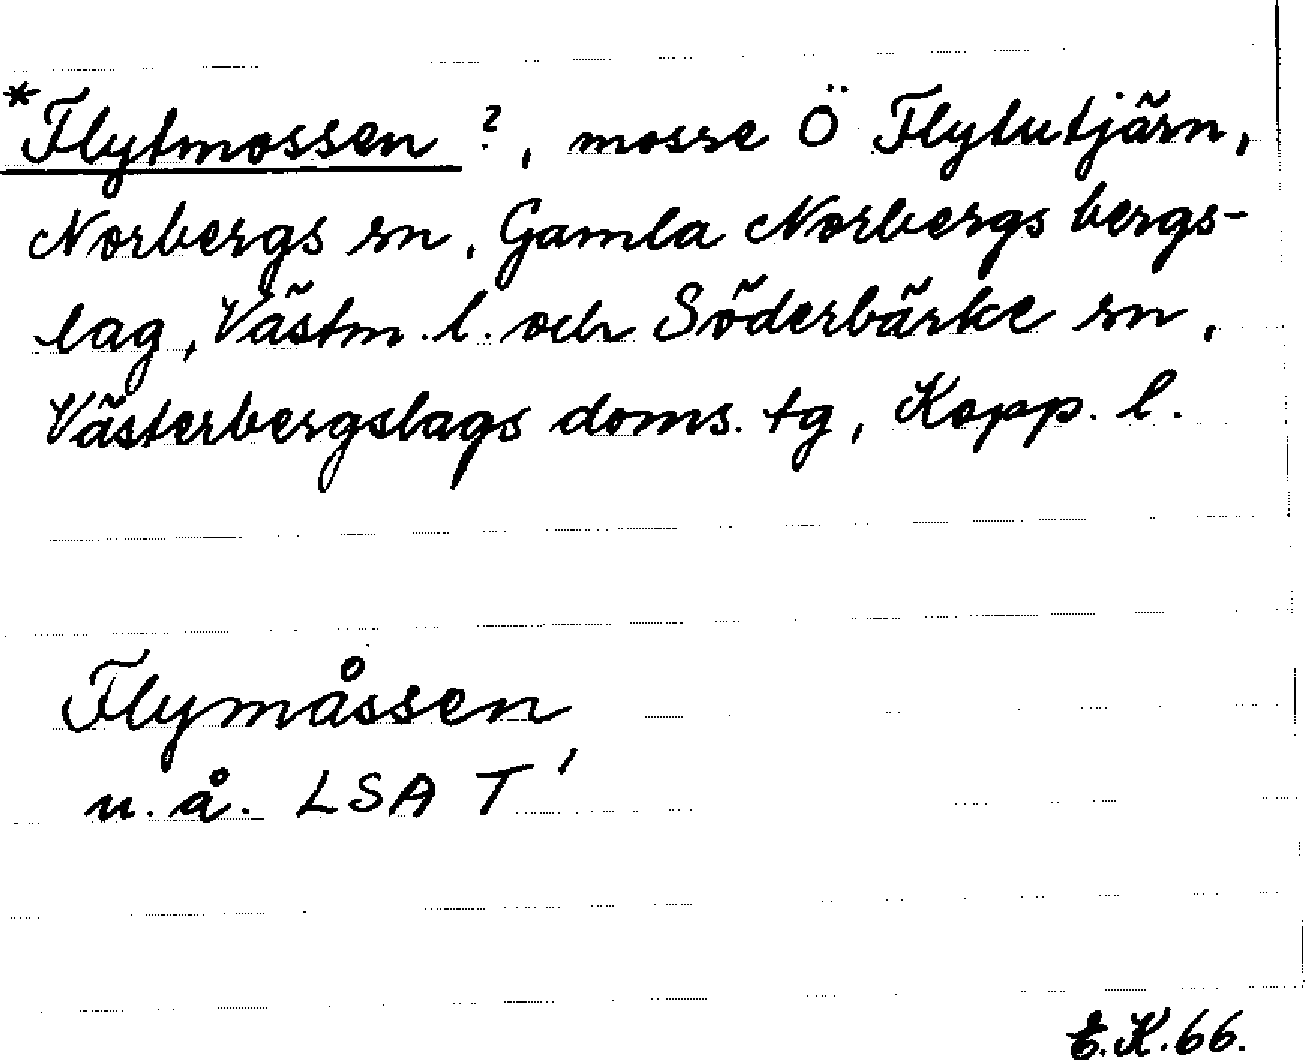 *Flytmossen ?, mosse Ö Flytutjärn,
Norbergs sn, Gamla Norbergs bergs-
lag, Västm. l. och Söderbärke sn,
Västerbergslags doms. tg, Kopp. l.
Flymåssen
u.å. LSA T'
E.K.66.